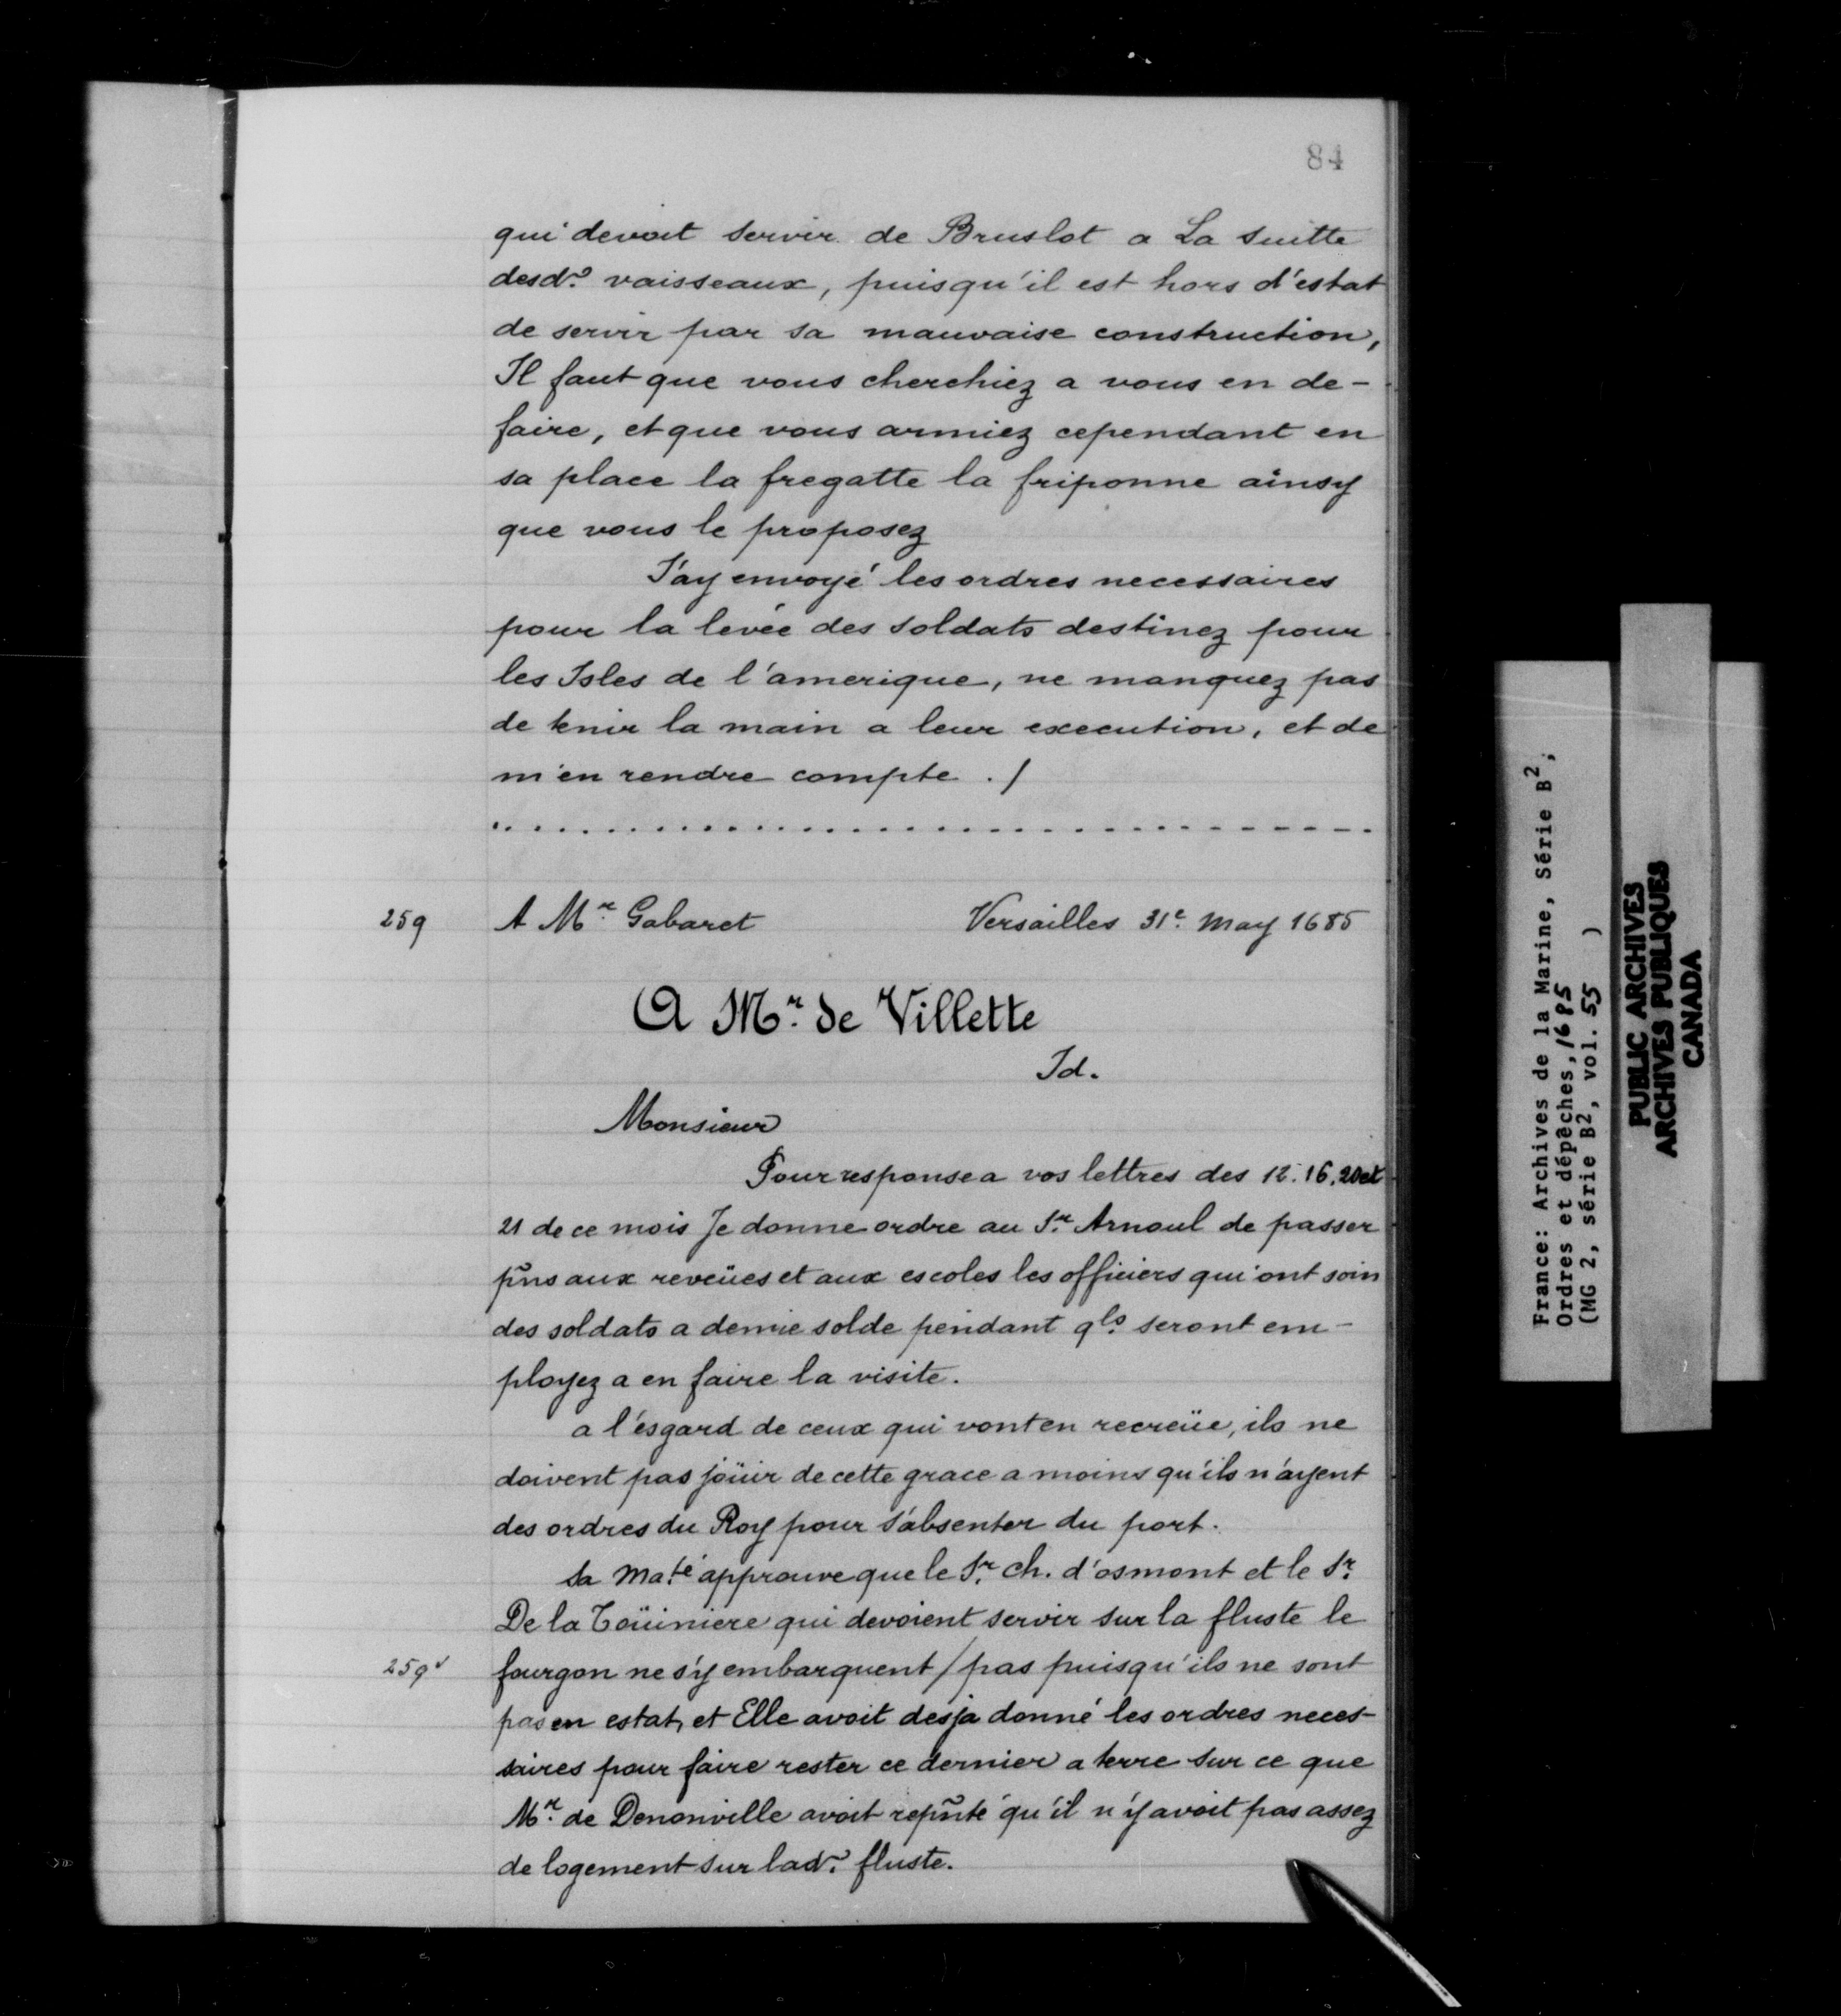 84
qui devoit servir de Bruslot a La suitte
desd.s vaisseaux, puisqu'il est hors d'estat
de servir par sa mauvaise construction,
Il faut que vous cherchiez a vous en de-
faire, et que vous armiez cependant en
sa place la fregatte la friponne ainsy
que vous le proposez
J'ay envoyé les ordres necessaires
pour la levée des soldats destinez pour
les Isles de l'amerique, ne manquez pas
de tenir la main a leur execution, et de
m'en rendre compte ./
........................................
259 A Mr. Gabaret Versailles 31e. May 1685
A Mr. de Villette
Id.
Monsieur
Pour response a vos lettres des 12. 16. 20 et
21 de ce mois Je donne ordre au Sr. Arnoul de passer
pñs aux reveües et aux escoles les officiers qui ont soin
des soldats a demie solde pendant qls. seront em-
ployez a en faire la visite.
a l'esgard de ceux qui vont en recreüe, ils ne
doivent pas joüir de cette grace a moins qu'ils n'ayent
des ordres du Roy pour s'absenter du port.
Sa Ma.té approuve que le Sr. ch. d'osmont et le Sr.
De la Toüiniere qui devoient servir sur la fluste le
259v fourgon ne s'y embarquent / pas puisqu'ils ne sont
pas en estat, et Elle avoit desja donné les ordres neces-
saires pour faire rester ce dernier a terre sur ce que
Mr. de Denonville avoit repñté qu'il n'y avoit pas assez
de logement sur lad. fluste.
France: Archives de la Marine, Série B2,
Ordres et dépêches, 1685
(MG 2, série B2, vol. 55 )
PUBLIC ARCHIVES
ARCHIVES PUBLIQUES
CANADA